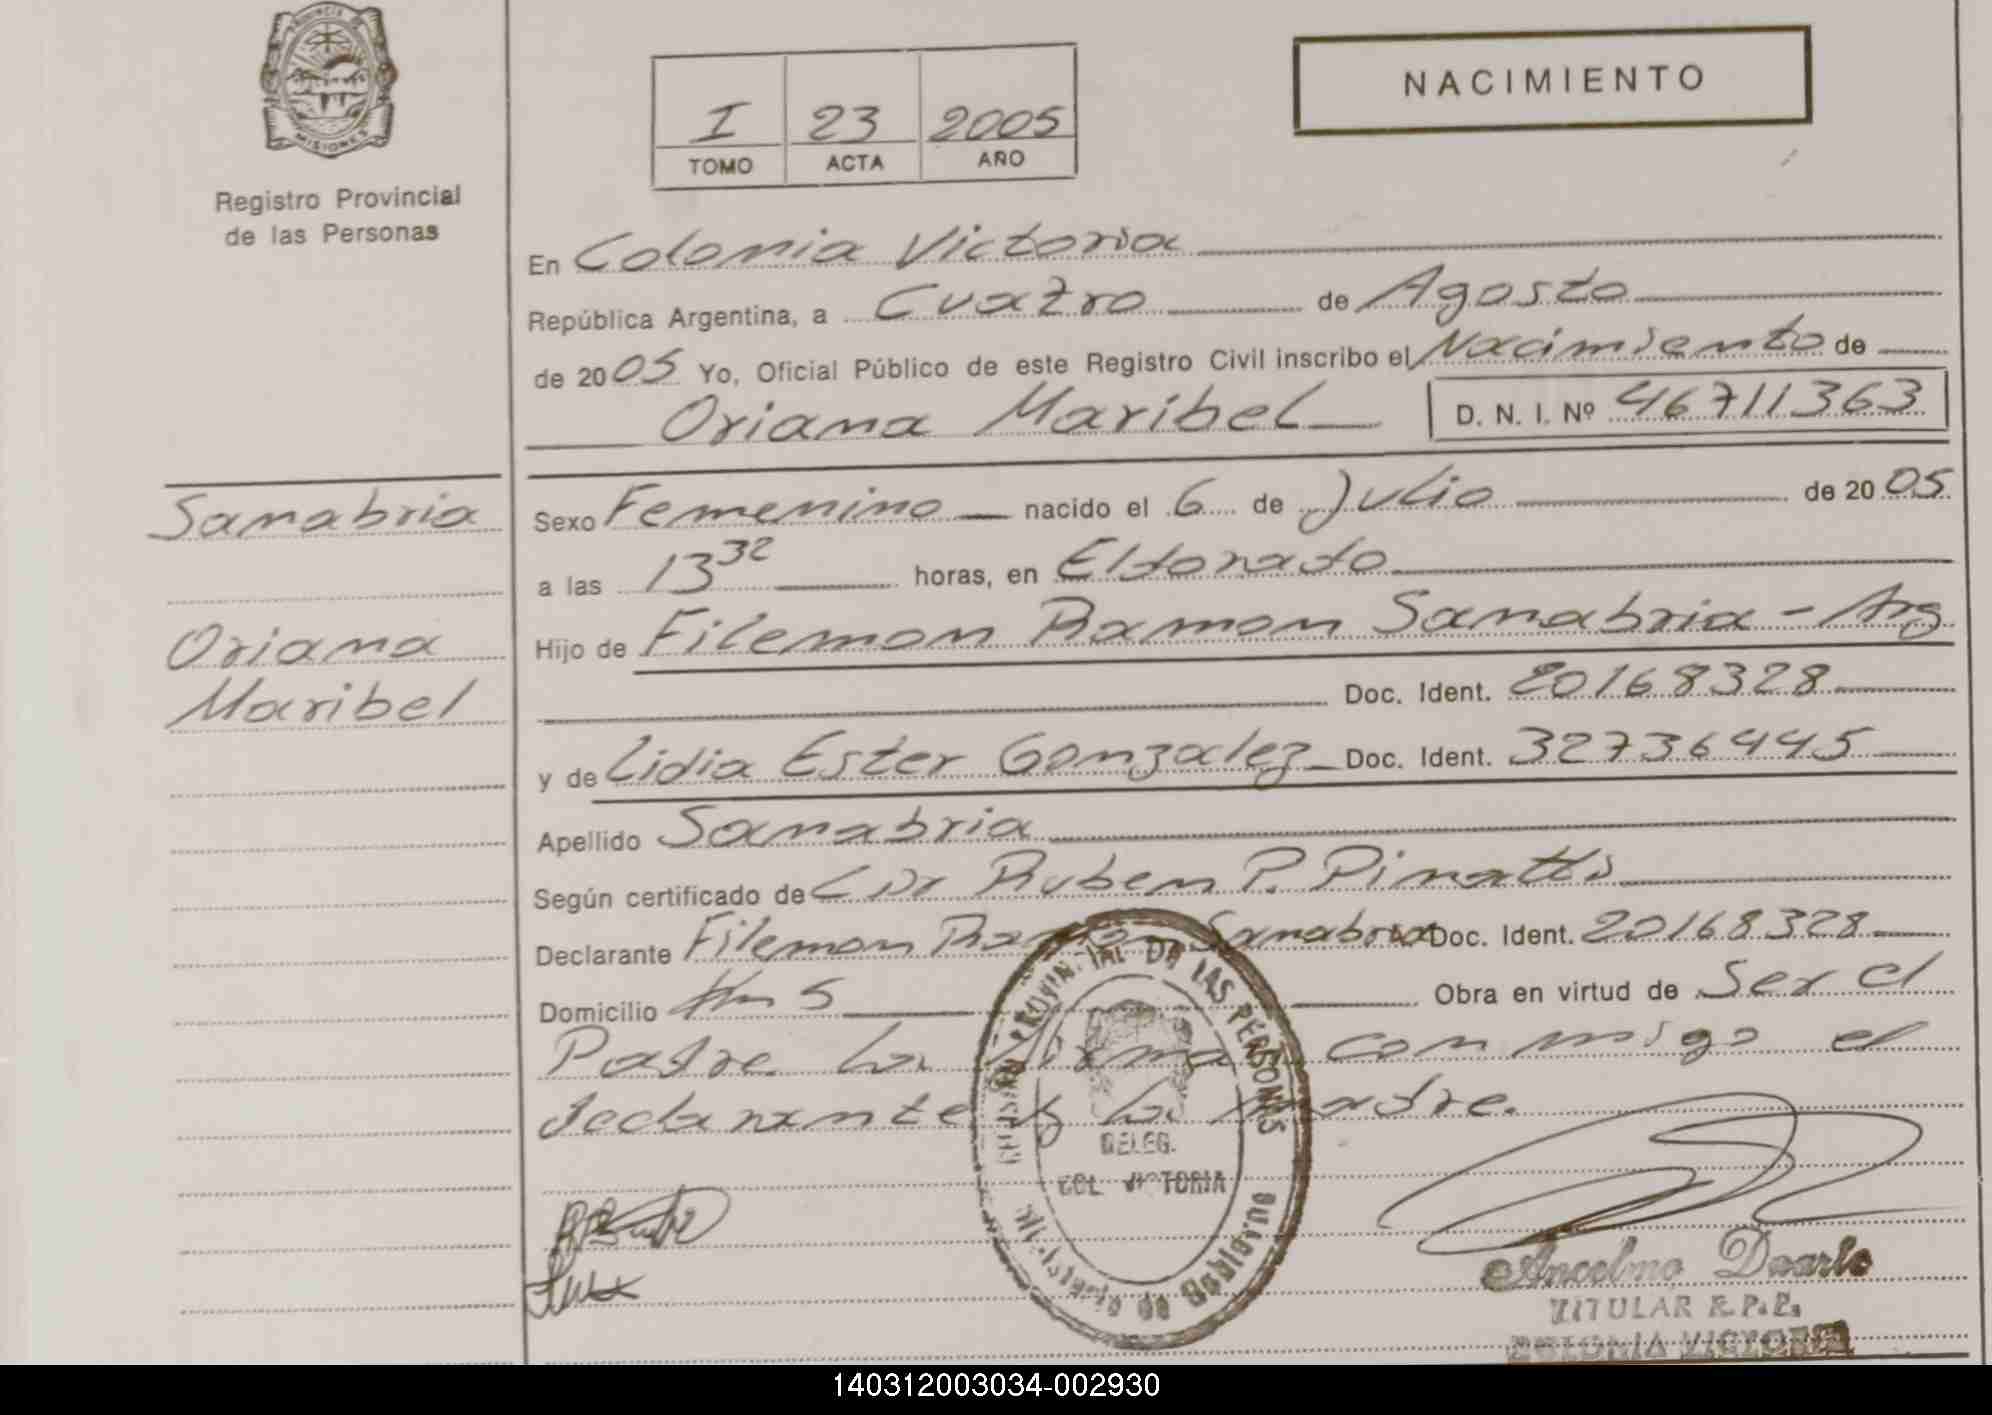 PROVINCIA DE
MISIONES
Registro Provincial
de las Personas
I 23 2005
TOMO ACTA AÑO
NACIMIENTO
En Colonia Victoria
República Argentina, a Cuatro de Agosto
de 2005 Yo, Oficial Público de este Registro Civil inscribo el Nacimiento de
Oriana Maribel D. N. I. Nº 46711363
Sanabria
Oriana
Maribel
Sexo Femenino nacido el 6 de Julio de 2005
a las 13 32 horas, en Eldorado
Hijo de Filemon Ramon Sanabria - Arg
Doc. Ident. 20168328
y de Lidia Ester Gonzalez Doc. Ident. 32736445
Apellido Sanabria
Según certificado de Ruben P.
Declarante Filemon Ramon Sanabria Doc. Ident. 20168328
Domicilio Km 5 Obra en virtud de Ser el
Padre. La firma conmigo el
declarante y la madre.
PROVIN. IAL DE LAS PERSONAS
DELEG.
COL VICTORIA
Ancelmo Duarte
TITULAR R.P.P.
COLONIA VICTORIA
140312003034-002930